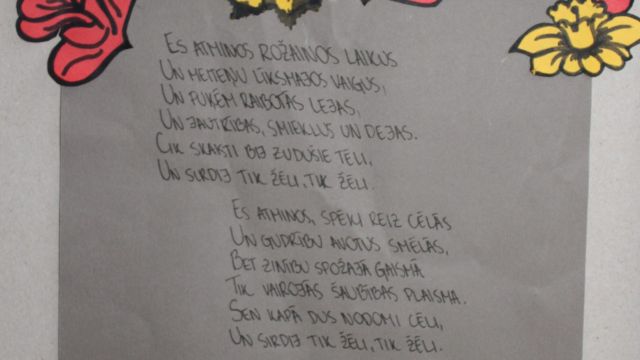 Es atminos rožainos laikus
Un meiteņu līksmajos vaigus,
Un puķēm raibotās lejas,
Un jautrības, smieklus un dejas.
Cik skaisti bij zudušie tēli,
Un sirdij tik žēli, tik žēli.
Es atminos, spēki reiz cēlās
Un gudrību avotus smēlās,
Bet zinību spožajā gaismā
Tik vairojās šaubības plaisma.
Sen kapā dus nodomi cēli,
Un sirdij tik žēli, tik žēli.